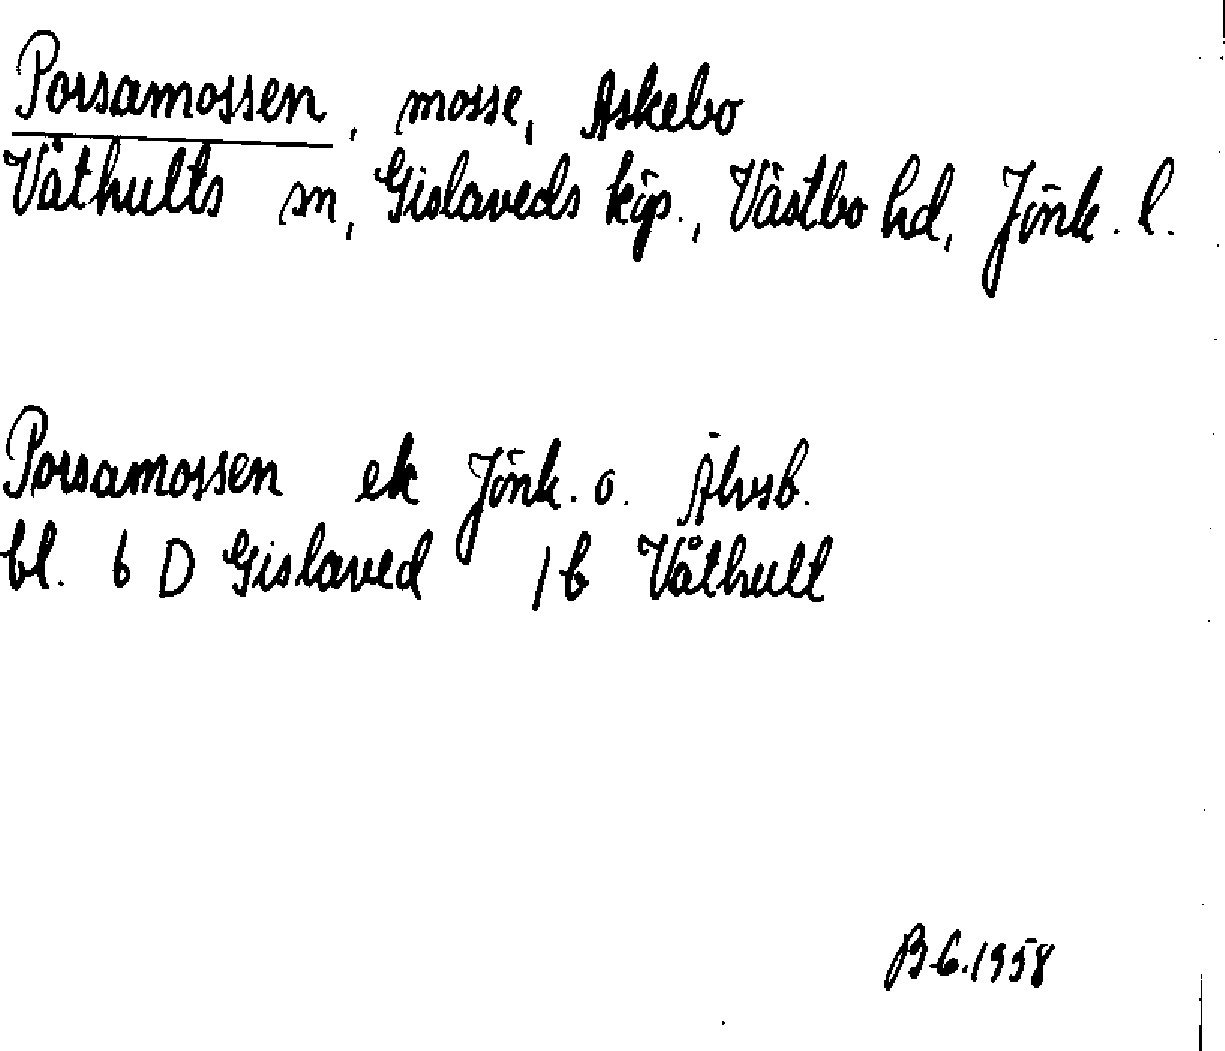 Porsamossen, mosse, Askebo
Våthults sn, Gislaveds köp., Västbo hd, Jönk. l.
Porsamossen ek Jönk. o. Älvsb.
bl. 6 D Gislaved 1b Våthult
B.G. 1958